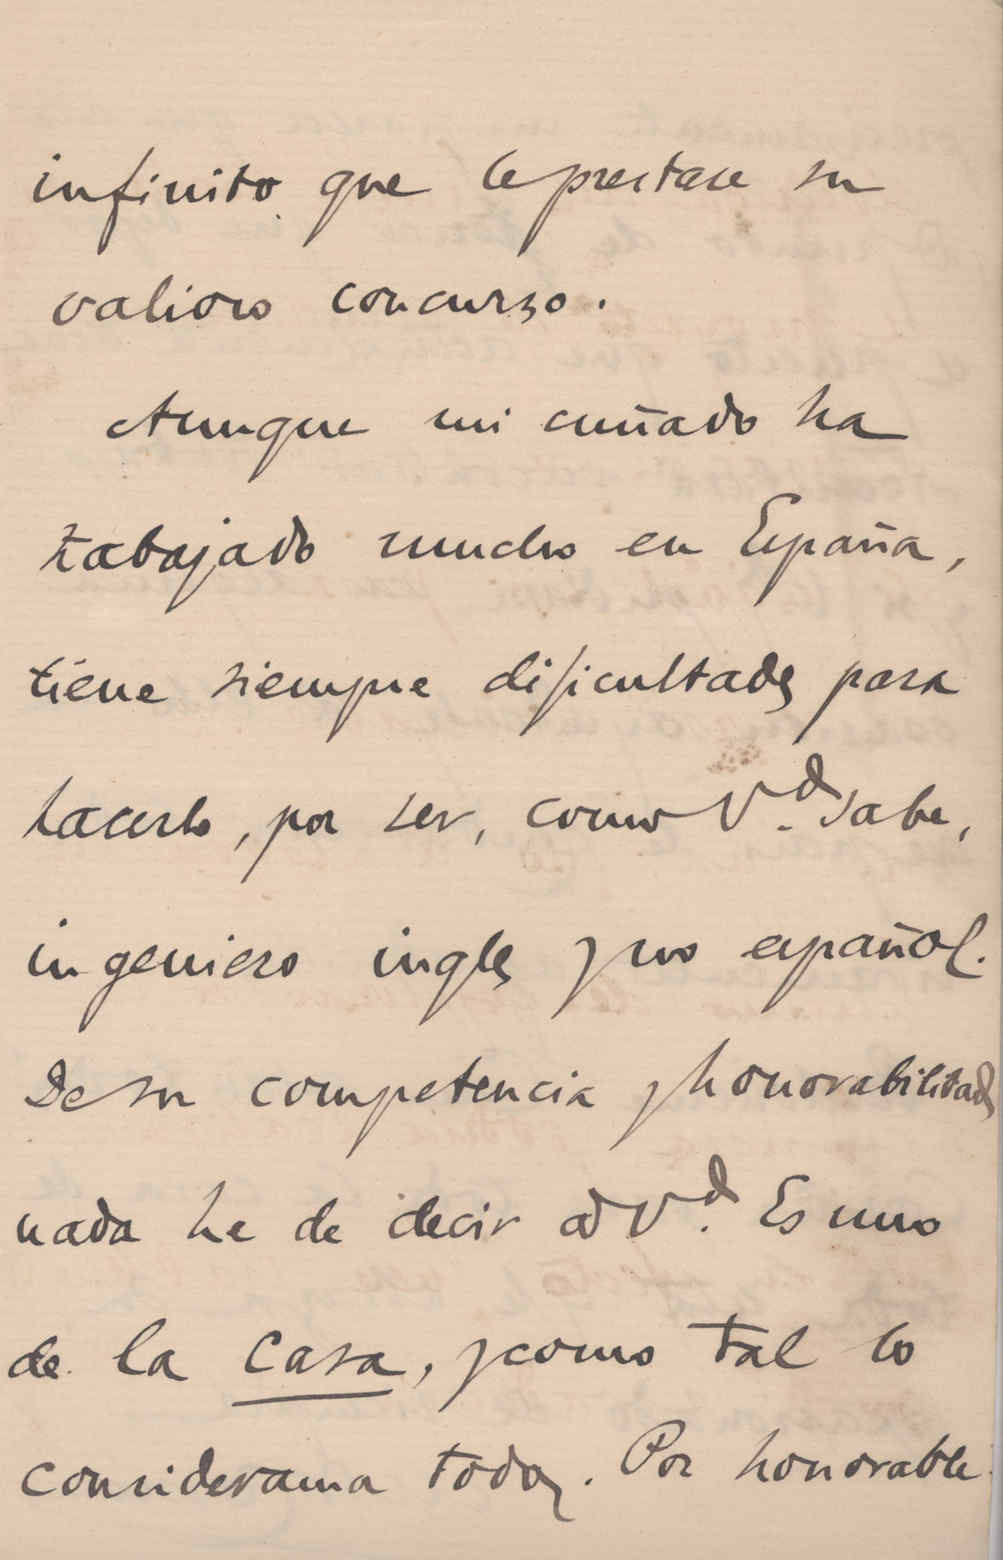 infinito que le prestase su
valioso concurso.
Aunque mi cuñado ha
trabajado mucho en España,
tiene siempre dificultades para
hacerlo, por ser, como V.d sabe,
ingeniero inglés y no español.
De su competencia y honorabilidad
nada he de decir a V.d. Es uno
de la casa, y como tal lo
consideramos todos. Por honorable